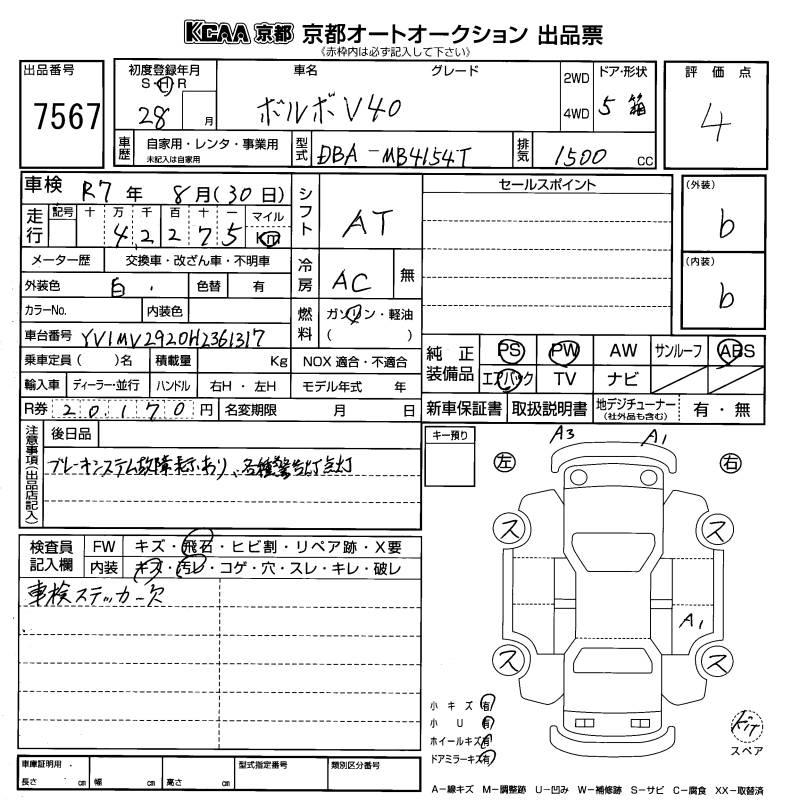 KCAA 京都 京都オートオークション 出品票
《赤枠内は必ず記入して下さい》
出品番号 7567
初度登録年月 S・H・R 28 月
車名 グレード ボルボV40
2WD 4WD
ドア・形状 5 箱
評価点 4
車歴 自家用・レンタ・事業用 未記入は自家用
型式 DBA-MB4154T
排気 1500 CC
車検 R7年 8月(30日)
シフト AT
セールスポイント
(外装) b
走行 記号 十 万 千 百 十 一 マイル Km
4 2 2 7 5
メーター歴 交換車・改ざん車・不明車
冷房 AC 無
(内装) b
外装色 白. 色替 有
カラーNo. 内装色
燃料 ガソリン・軽油 ( )
車台番号 YV1MV2920H2361317
純正装備品 PS PW AW サンルーフ ABS
エアバック TV ナビ
乗車定員( )名 積載量 Kg NOX 適合・不適合
輸入車 ディーラー・並行 ハンドル 右H・左H モデル年式 年
R券 20,170円 名変期限 月 日
新車保証書 取扱説明書 地デジチューナー (社外品も含む) 有・無
注意事項(出品店記入)
後日品
ブレーキシステム故障表示あり、各種警告灯点灯
キー預り
A3 A1
左 右
ス ス
検査員記入欄 FW キズ・飛石・ヒビ割・リペア跡・X要
内装 キズ・汚レ・コゲ・穴・スレ・キレ・破レ
車検ステッカー欠
A1
ス ス
小キズ 有
小U 有
ホイールキズ 有
ドアミラーキズ 有
KIT
スペア
車庫証明用. 長さ cm 幅 cm 高さ cm
型式指定番号 類別区分番号
A-線キズ M-調整跡 U-凹み W-補修跡 S-サビ C-腐食 XX-取替済